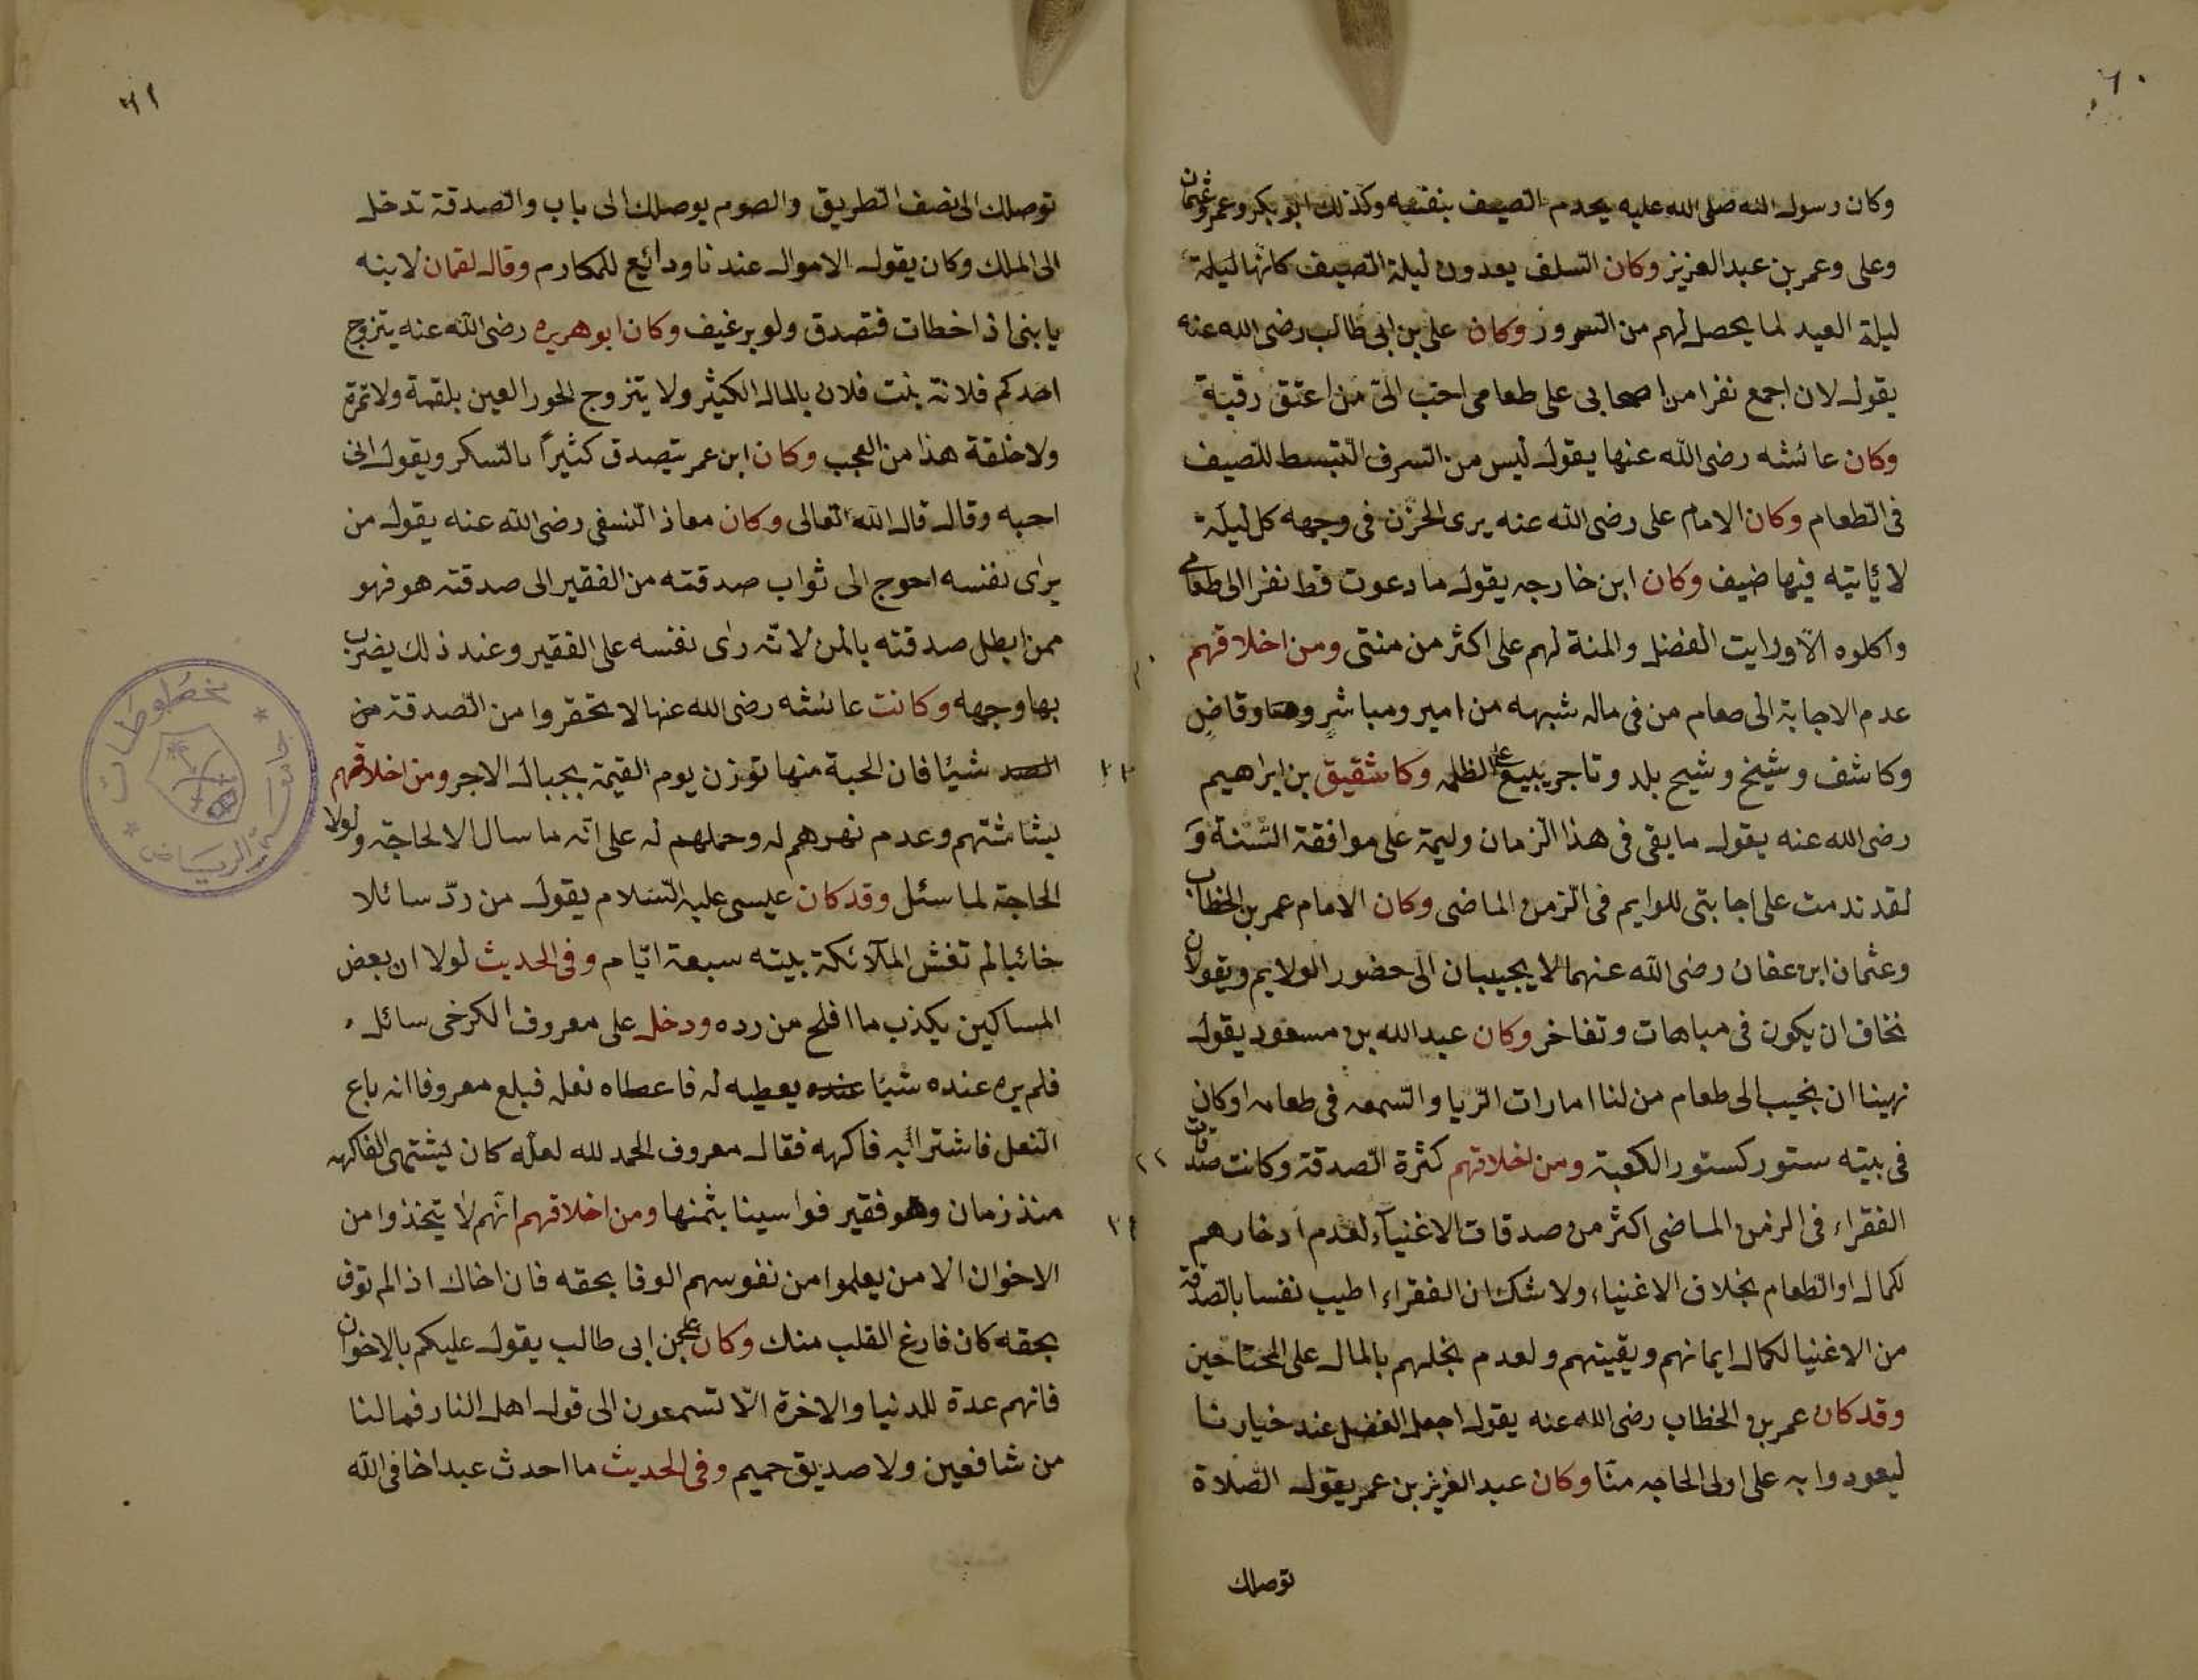 ٦٠
وكان رسول الله صلى الله عليه يخدم الضيف بنفسه وكذلك ابو بكر وعمر وعثمان
وعلى وعمر بن عبد العزيز وكان السلف يعدون ليلة الضيف كانها ليلة
ليلة العيد لما يحصل لهم من السرور وكان على بن ابى طالب رضى الله عنه
يقول لان اجمع نفرا من اصحابى على طعامى احب الىّ من اعتق رقبة
وكان عائشه رضى الله عنها يقول ليس من السرف التبسط للضيف
فى الطعام وكان الامام على رضى الله عنه يرى الحزن فى وجهه كل ليلة
لا يأتيه فيها ضيف وكان ابن خارجه يقول ما دعوت قط نفرا الى طعامى
واكلوه الا ورايت الفضل والمنة لهم على اكثر من منتى ومن اخلاقهم
عدم الاجابة الى طعام من فى ماله شبهه من امير ومباشر وقاضٍ
وكاشف وشيخ وشيخ بلد وتاجر يبيع على الظلمه وكا شقيق بن ابراهيم
رضى الله عنه يقول ما بقى فى هذا الزمان وليمة على موافقة السّنة وَ
لقد ندمت على اجابتى للوايم فى الزمن الماضى وكان الامام عمر بن الخطاب
وعثمان ابن عفان رضى الله عنهما لا يجيبان الى حضور الولايم ويقولان
نخاف ان يكون فى مباهات وتفاخر وكان عبد الله بن مسعود يقول
نهينا ان نجيب الى طعام من لنا امارات الريا والسمعه فى طعامه او كان
فى بيته ستور كستور الكعبة ومن اخلاقهم كثرة الصدقة وكانت صدقات
الفقراء فى الزمن الماضى اكثر من صدقات الاغنيآء لعدم ادخارهم
لكمال او الطعام بخلاف الاغنياء ولا شك ان الفقراء اطيب نفسا بالصدقة
من الاغنيا لكمال ايمانهم ويقينهم ولعدم بخلهم بالمال على المحتاجين
وقد كان عمر بن الخطاب رضى الله عنه يقول اجعل الفضل عند خيارنا
ليعودوا به على اولى الحاجه منّا وكان عبد العزيز بن عمر يقول الصلاة
توصلك
٦١
توصلك الى نصف الطريق والصوم يوصلك الى باب والصدقة تدخل
الى الملك وكان يقول الاموال عندنا ودائع للمكارم وقال لقمان لابنه
يا بنى اذ اخطات فتصدق ولو برغيف وكان ابو هريره رضى الله عنه يتزوج
احدكم فلانة بنت فلان بالمال الكثير ولا يتزوج الحور العين بلقمة ولا تمرة
ولا خلقة هذا من العجب وكان ابن عمر يتصدق كثيرًا بالسكر ويقول انى
احبه وقال قال الله تعالى وكان معاذ النسفى رضى الله عنه يقول من
يراى نفسه احوج الى ثواب صدقته من الفقير الى صدقته هو فهو
ممن ابطل صدقته بالمن لانه راى نفسه على الفقير وعند ذلك يضرب
بها وجهه وكانت عائشه رضى الله عنها لا تحقروا من الصدقة من
الصد شيئا فان الحبة منها توزن يوم القيمة بجبال الاجر ومن اخلاقهم
بشاشتهم وعدم نهرهم له وحملهم له على انّه ما سال الا لحاجة ولولا
الحاجة لما سئل وقد كان عيسى عليه السلام يقول من ردّ سائلا
خائبا لم تغش الملآئكة بيته سبعة ايّام وفى الحديث لولا ان بعض
المساكين يكذب ما افلح من رده ودخل على معروف الكرخى سائل
فلم يره عنده شيئا عنده يعطيه له فاعطاه نعله فبلغ معروفا انه باع
النعل فاشترا به فاكهه فقال معروف الحمد لله لعله كان يشتهى الفاكهه
منذ زمان وهو فقير فواسينا بثمنها ومن اخلاقهم انهم لا يتخذوا من
الاخوان الا من يعلموا من نفوسهم الوفا بحقه فان اخاك اذا لم توف
بحقه كان فارغ القلب منك وكان على بن ابى طالب يقول عليكم بالاخوان
فانهم عدة للدنيا والاخرة الّا تسمعون الى قول اهل النار فما لنا
من شافعين ولا صديق حميم وفى الحديث ما احدث عبد اخا فى الله
جامعة الرياض
مخطوطات